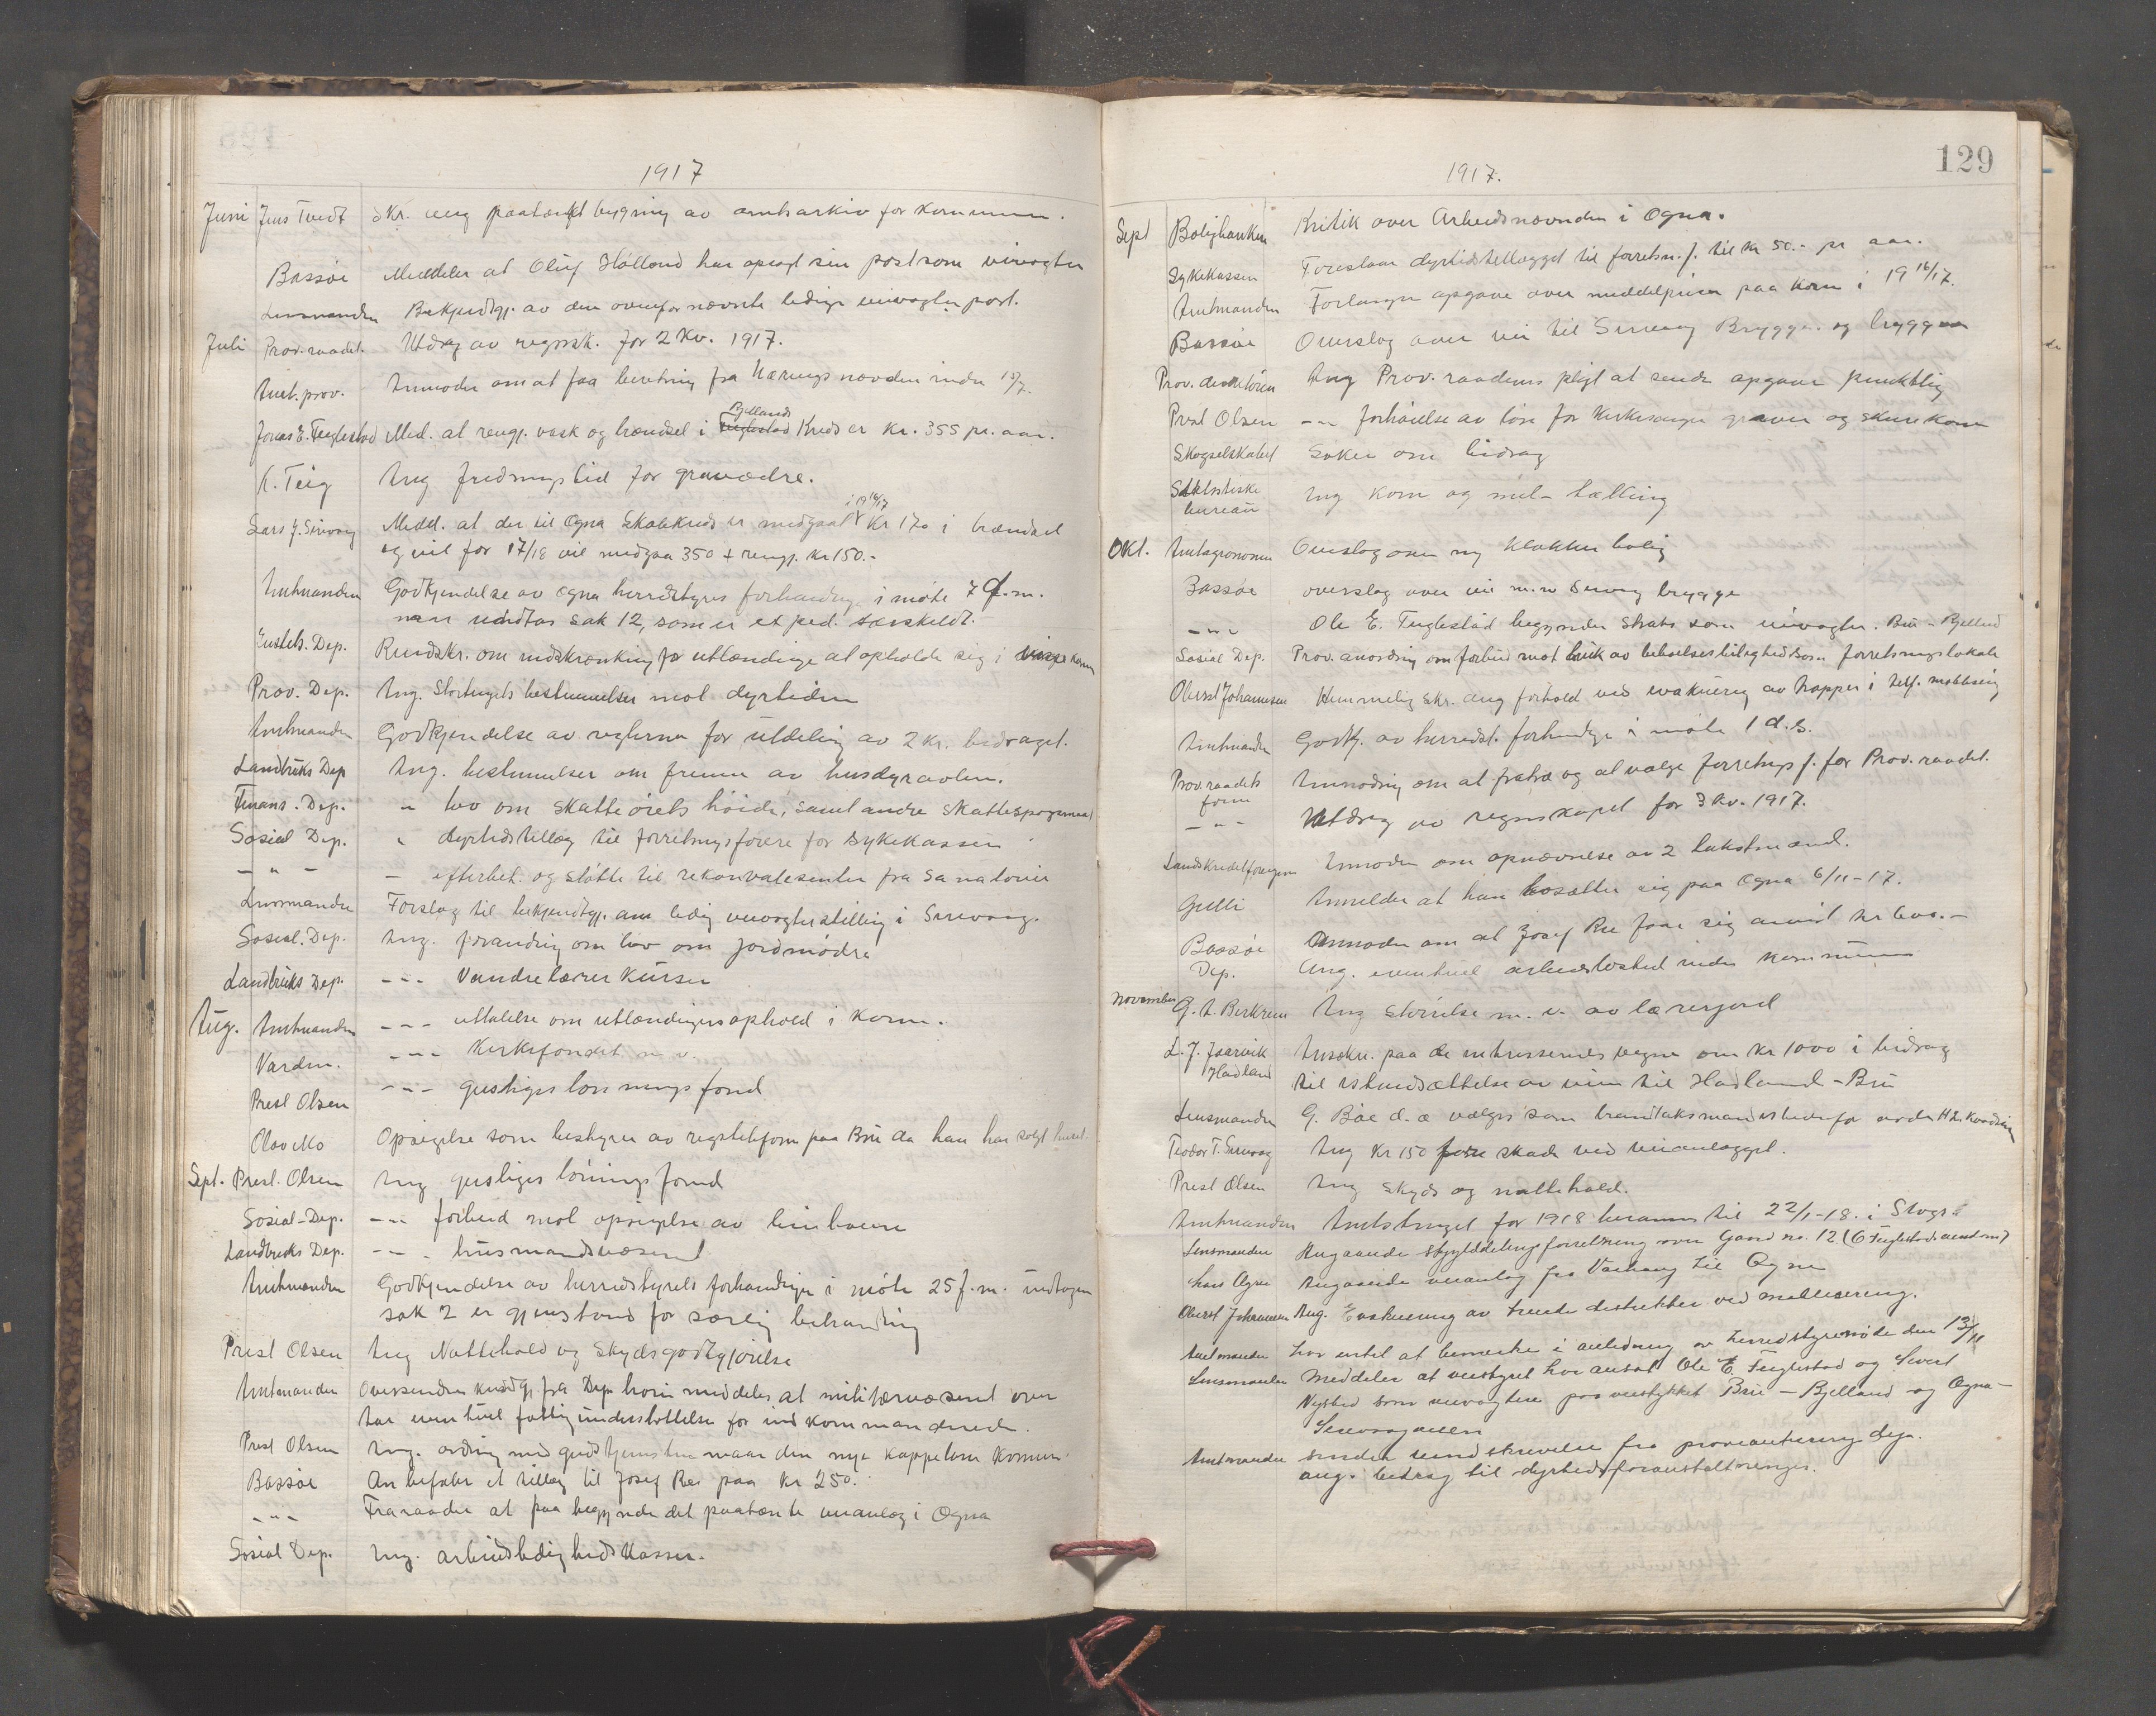 1917
Juni Jens Tvedt Skr. ang paatænkt bygning av amtsarkiv for kommunen.
Bassøe Meddeler at Oluf Hølland har opsagt sin post som veivogter
Lensmanden Bekjendtgj. av den ovenfor nævnte ledige veivogter post.
Juli Prov. raadet. Utdrag av regnsk. for 2 Kv. 1917.
Amt. prov. Anmoder om at faa beretning fra Nærings nævnden inden 15/7.
Jonas E. Fuglestad Med. at rengj. vask og brændsel i Fuglestad Bjellands Kreds er kr. 355 pr. aar.
K. Teig Ang fredningstid for graverdre.
Lars J. Sirevaag Medd. at der til Ogna Skolekreds er medgaat i 19 16/17 kr 170 i brændsel
og vil for 17/18 vil medgaa 350 + rengj. kr 150.-
Amtmanden Godkjendelse av Ogna herredstyres forhandlinger i møte 7 f. m.
men undtas sak 12, som er et sær. særskildt.
Justits. Dep. Rundskr. om indskrænkning for utlændinge at opholde sig i visse komm
Prov. Dep. Ang. Stortingets bestemmelser mot dyrtiden
Amtmanden Godkjendelse av reglerne for utdeling av 2 kr. bidraget.
Landbruks Dep Ang. bestemmelser om fremme av husdyravlen.
Finans. Dep. " lov om skatteørets høide, samt andre skattespørgsmaal
Sosial Dep. " dyrtidstillæg til forretningsførere for sykekassen
- " - - efterbeh. og støtte til rekonvalesenter fra Sanatorier
Lensmanden Forslag til bekjendtgj. om ledig veivogterstilling i Sirevaag.
Sosial. Dep. Ang. forandring om lov om jordmødre
Landbruks Dep. - - - Vandrelærer Kurser
Aug. Amtmanden - - - uttalelse om utlændingers ophold i Komm.
Varden. - - - Kirkefondet m. v.
Prest Olsen - - - geistliges lønnings fond
Olav Mo Opsigelse som bestyrer av rigstelefonen paa Bru da han har solgt huset.
Sept. Prest. Olsen Ang geistliges lønnings fond
Sosial-Dep. - - - forbud mot opsigelse av leieboere
Landbruks Dep. - - - husmandsvæsenet
Amtmanden Godkjendelse av herredstyrets forhandlinger i møte 25 f. m. undtagen
sak 2 er gjenstand for særlig behandling
Prest Olsen Ang Nattehold og Skydsgodtgjørelse
Amtmanden Oversender rundskr. fra Dep hvori meddeles at militærvæsenet over
tar eventuel fattigunderstøttelse for indkommanderede.
Prest Olsen Ang. ordning med gudstjenesten naar den nye kappelan kommer.
Bassøe Anbefaler et tillæg til Josef Ree paa kr 250.
- " - Fraraader at paa begynde det paatænkte veianlæg i Ogna
Sosial Dep. Ang. arbeidsledighedskasser.
129
1917.
Sept Boligbanken Kritik over Arbeidsnævnden i Ogna.
Sykekassen Foreslaar dyrtidstillægget til forretn. f. til kr 50.- pr aar.
Amtmanden Forlanger opgave over middelprisen paa korn i 19 16/17.
Bassøe Overslag over vei til Sirevaag Brygge og bryggen
Prov. direktøren Ang Prov. raadenes pligt at sende opgaver punktlig
Prest Olsen - " - forhøielse av løn for kirkesanger graver og skurekone
Skogselskabet Søker om bidrag
Statistiske bureau Ang korn og mel-tælling
Okt. Amtagronomen Overslag over ny klokker bolig
Bassøe overslag over vei m. v. Sirevaag brygge
- " - Ole E. Fuglestad begynder straks som veivogter. Bru - Bjelland
Sosial Dep. Prov. anordning om forbud mot bruk av beboelsesleilighed som forretningslokale
Oberst Johannesen Hemmelig skr. ang forhold ved evakuering av tropper i tilf. mobilisering
Amtmanden Godkj. av herredst. forhandlinger i møte 1 d. s.
Prov. raadets form Anmodning om at fratræ og at vælge forretnings f. for Prov. raadet.
- " - Utdrag av regnskapet for 3 kv. 1917.
Landskreditforeningen Anmoder om opnævnelse av 2 takstmænd.
Gulli Anmelder at han bosætter sig paa Ogna 6/11-17.
Bassøe Anmoder om at Josef Ree faar sig anvist kr 600.-
Dep. Ang. eventuel arbeidsløshed inden kommunen
November G. A. Berkrem Ang størrelse m. v. av lærerjord
L. J. Jaarvik Hadland Ansøkn. paa de interessertes vegne om kr 1000 i bidrag
til istandsættelse av veien til Hadland - Bru
Lensmanden G. Bøe d. æ vælges som brandtaksmand istedenfor avdøde H. L. Kvadsheim
Teodor T. Sirevaag Ang kr 150 for skade ved veianlægget.
Prest Olsen Ang skyds og nattehold.
Amtmanden Amtstinget for 1918 berammes til 22/1-18. i Stvgr.
Lensmanden Angaaende skylddelingsforretning over Gaard no. 12 (G Fuglestads eiendom)
Lars Ogne Angaaende veianlæg fra Varhaug til Ogna
Oberst Johannesen Ang. Evakuering av truede distrikter ved mobilisering.
Amtmanden har intet at bemerke i anledning av herredstyremøte den 13/11
Lensmanden Meddeler at veistyret har ansat Ole E. Fuglestad og Sivert
Nystad som veivogtere paa veistykket Bru - Bjelland og Ogna -
Sirevaagveien
Amtmanden sender rundskrivelse fra proviantering dep.
ang. bidrag til dyrtidsforanstaltninger.